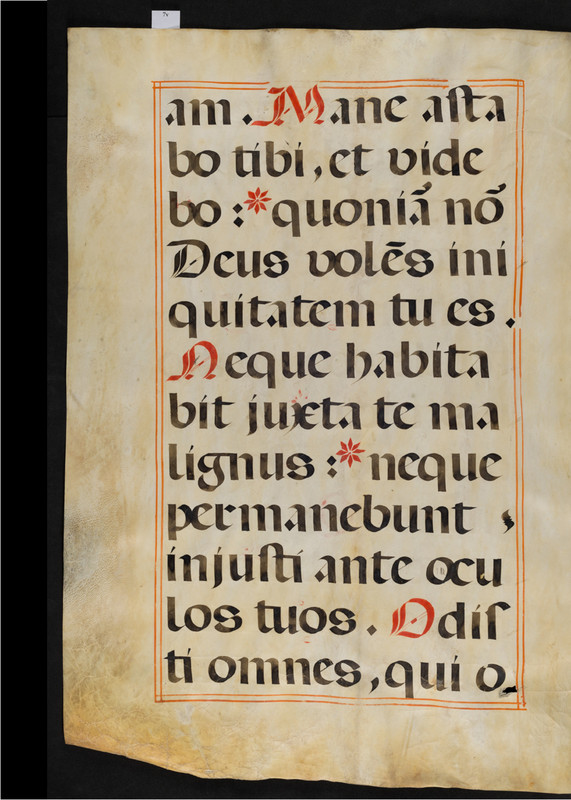 am. Mane aſta
bo tibi, et vide
bo :* quoniã nõ
Deus volẽs ini
quitatem tu es.
Neque habita
bit juxta te ma
lignus :* neque
permanebunt
injuſti ante ocu
los tuos. Odiſ
ti omnes, qui o